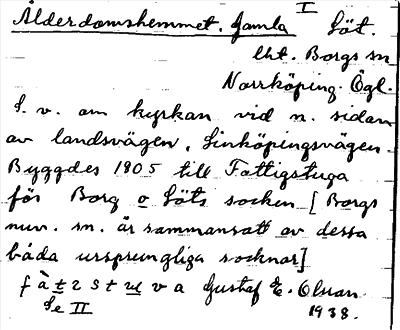 Ålderdomshemmet. Gamla I Löt.
lht. Borgs sn
Norrköping. Ögl.
S. v. om kyrkan vid n. sidan
av landsvägen, Linköpingsvägen.
Byggdes 1905 till Fattigstuga
för Borg o Löts socken [Borgs
nuv. sn. är sammansatt av dessa
båda ursprungliga socknar]
fàtzstuva Gustaf E. Olsson.
Se II 1938.